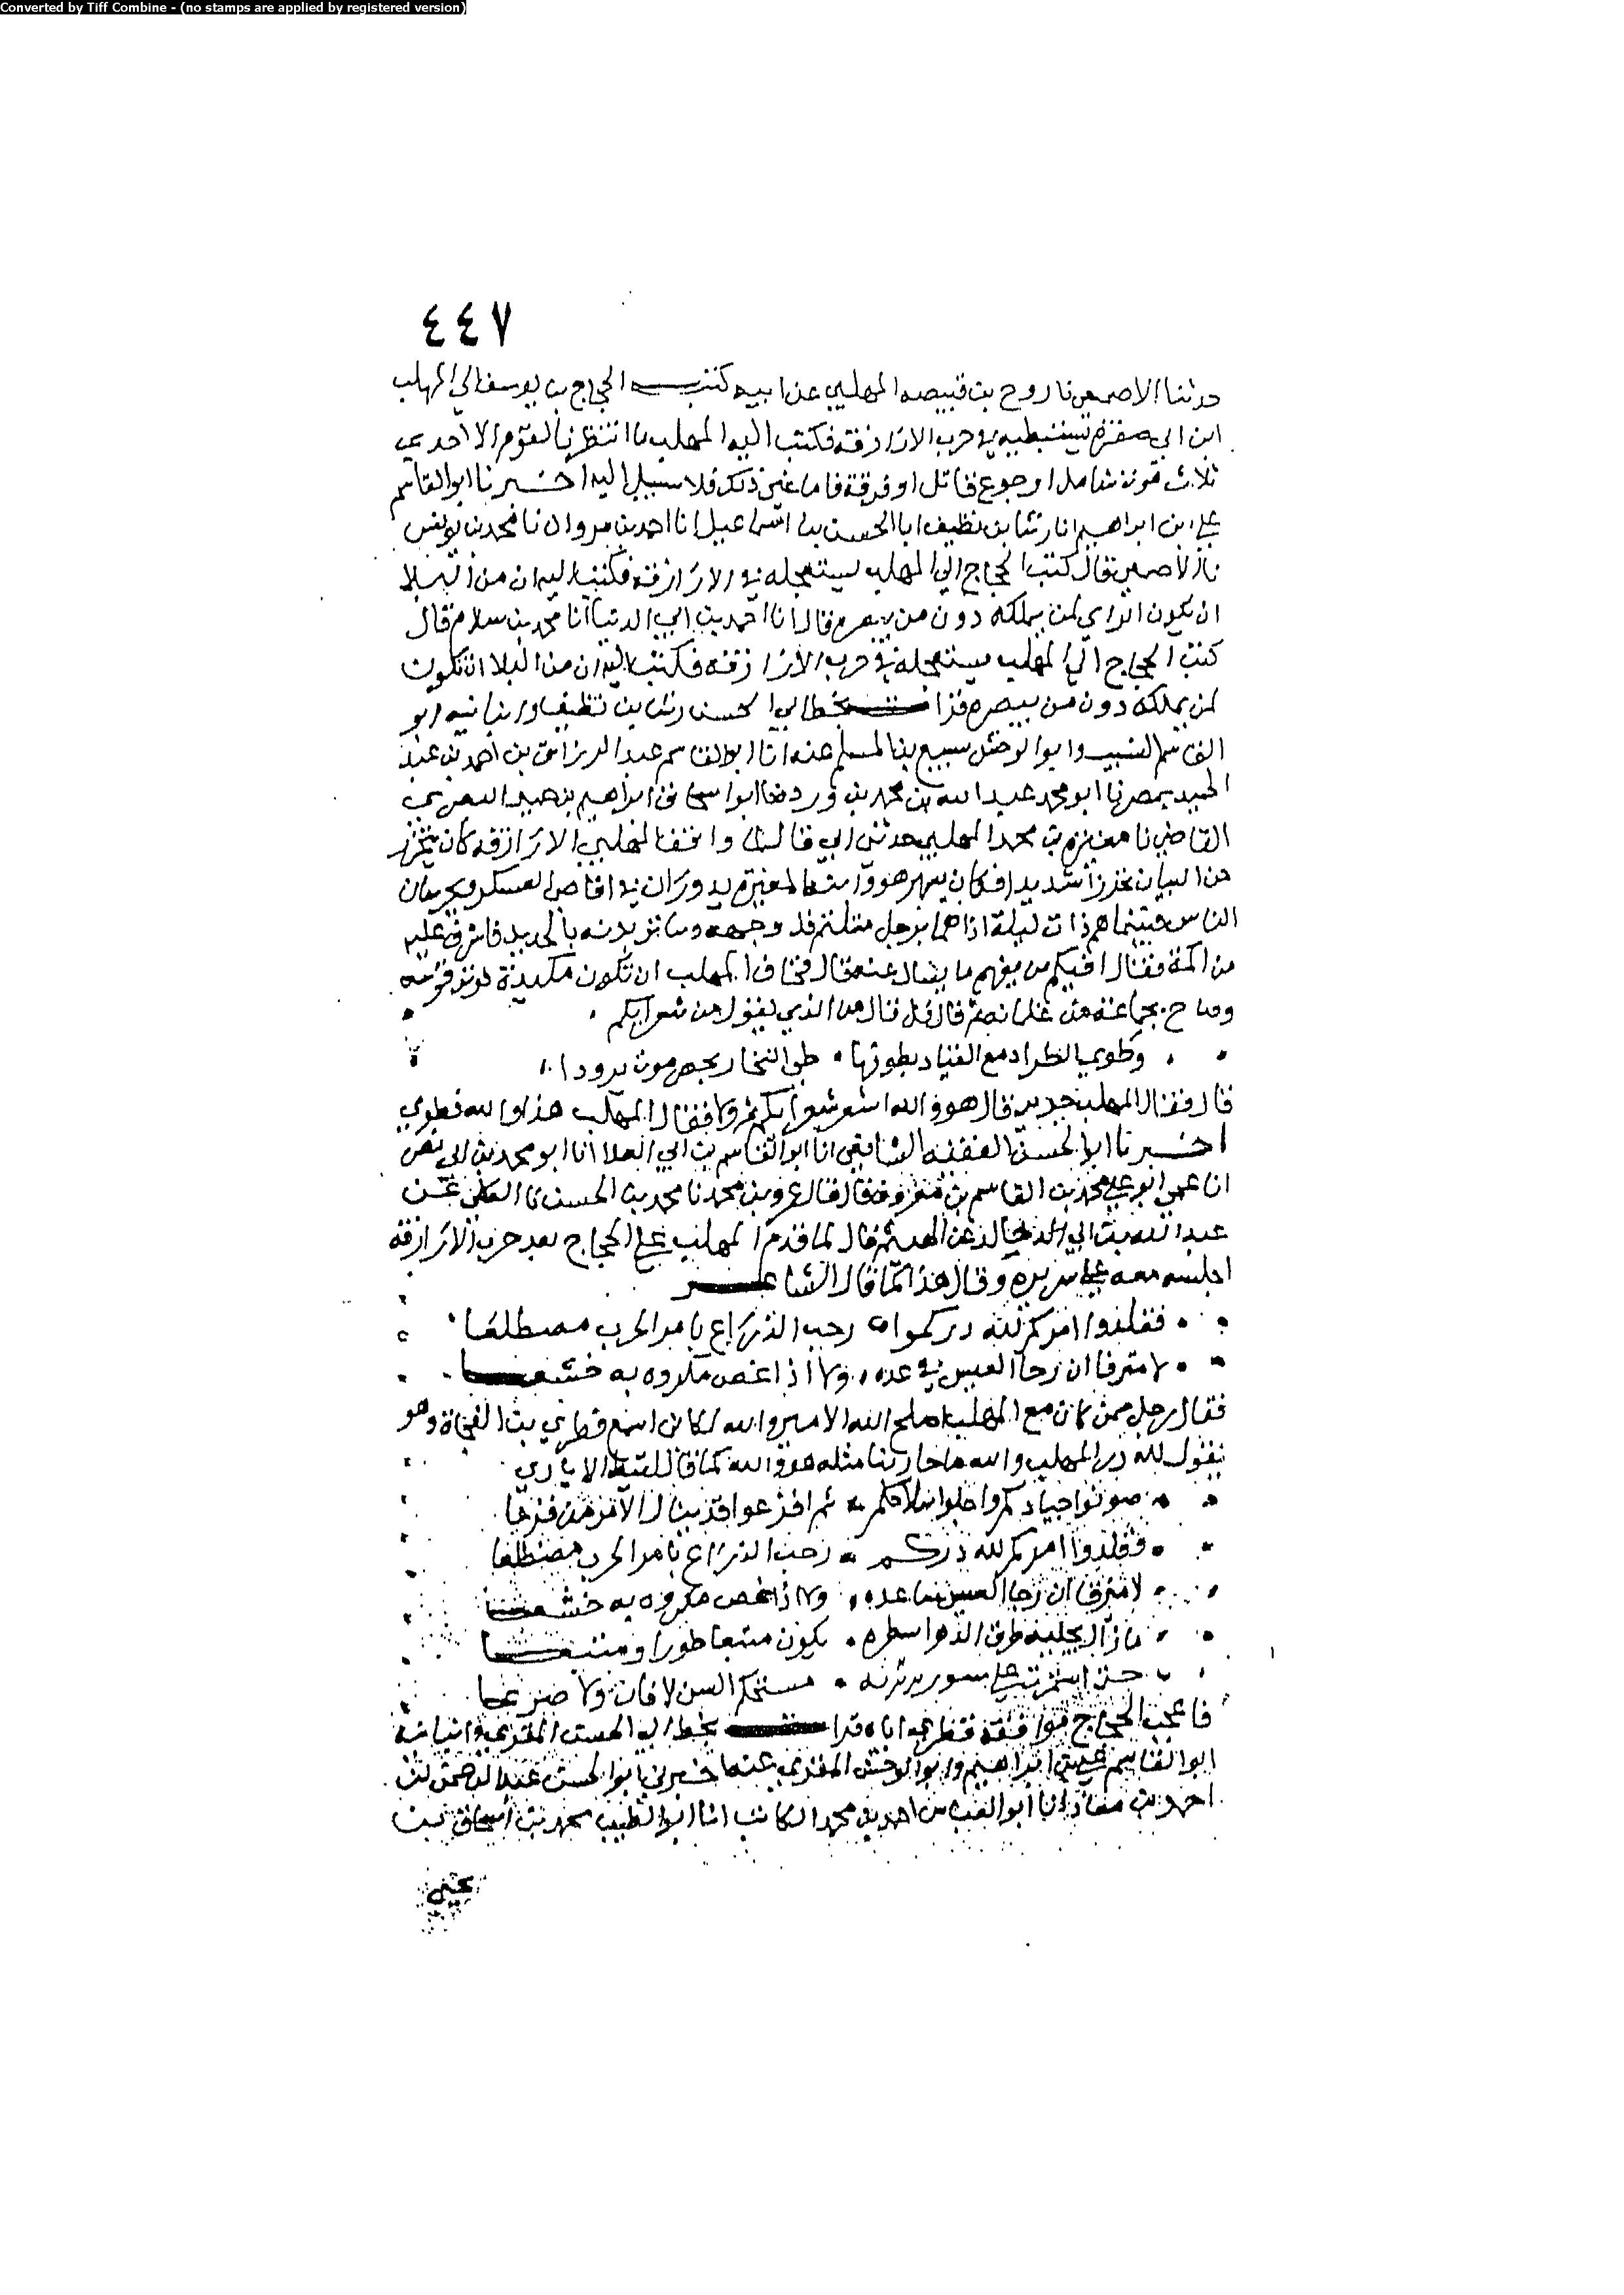 Converted by Tiff Combine - (no stamps are applied by registered version)
٤٤٧
حدثنا الاصمعي نا روح بن قبيصه المهلبي عن ابيه كتب الحجاج بن يوسف الي المهلب
ابن ابي صفره يستبطيه في حرب الازارقه فكتب اليه المهلب ما انتظر بالقوم الا احدي
ثلاث موت شامل او جوع قاتل او فرقة فاما غير ذلك فلا سبيل اليه اخبرنا ابو القاسم
علي ابن ابراهيم انا رشا بن نظيف انا الحسن بن اسماعيل انا احمد بن مروان نا محمد بن يونس
نا الاصمعي قال كتب الحجاج الي المهلب يستعجله في الازارقه فكتب اليه ان من البلا
ان يكون الراي لمن يملكه دون من يبصره قال انا احمد بن ابي الدنيا انا محمد بن سلام قال
كتب الحجاج الي المهلب يستعجله في حرب الازارقه فكتب اليه ان من البلا ان يكون
لمن يملكه دون من يبصره قرات بخط ابي الحسن رشا بن نظيف وانبانيه ابو
القاسم النسيب وابو الوحش سبيع بن المسلم عنه انا ابو القاسم عبد الرزاق بن احمد بن عبد
الحميد بمصر نا ابو محمد عبد الله بن محمد بن ورد نا ابو اسحاق ابراهيم بن حميد البصري
القاضي نا مغيره بن محمد المهلبي حدثني ابي قال لما واقف المهلب الازارقه كان يتحرز
من البيات تحرزا شديدا فكان يسهر هو وابنه المغيره يدوران في اقاصي العسكر ويحرسان
الناس فبينما هم ذات ليلة اذا هما برجل متلثم قد وجهه وما تزينه بالحديد فاشرف عليه
من اكمة فقال افيكم من يفهم ما يقال عنه قال فخاف المهلب ان تكون مكيدة فوتر قوسه
وصاح بجماعة من غلمانه ثم قال قل قال من الذي يقول من شعرايكم
وطوي الطراد مع القياد بطونها طي التجار بحضرموت برودا
قال فقال المهلب جرير قال هو والله اشعر شعرايكم ثم ولا فقال المهلب هذا والله قطري
اخبرنا ابو الحسن الفقيه الشافعي انا ابو القاسم بن ابي العلا انا ابو محمد بن ابي نصر
انا عمي ابو علي محمد بن القاسم بن معروف قال قال عمرو بن محمد نا محمد بن الحسن نا العكلي عن
عبد الله بن ابي خالد عن الهيثم قال لما قدم المهلب علي الحجاج بعد حرب الازارقه
اجلسه معه علي سريره وقال هذا كما قال الشاعر
فقلدوا امركم لله دركموا رحب الذراع بامر الحرب مضطلعا
لا مترفا ان رخا العيش ساعده ولا اذا عض مكروه به خشعا
فقال رجل ممن كان مع المهلب اصلح الله الامير والله لكاني اسمع قطري بن الفجاة وهو
يقول لله در المهلب والله ما حاربنا مثله هو والله كما قال لقيط الايادي
صونوا جيادكم واجلوا سلاحكم ثم افزعوا قد ينال الامر من فزعا
فقلدوا امركم لله دركم رحب الذراع بامر الحرب مضطلعا
لا مترفا ان رخا العيش ساعده ولا اذا عض مكروه به خشعا
ما زال يحلب در الدهر اشطره يكون متبعا طورا ومتبعا
حتي استمرت علي شزر مريرته مستحكم السن لا فان ولا ضرعا
فاعجب الحجاج موافقة قطري اياه قرات بخط ابي الحسن المقري وانبانيه
ابو القاسم علي بن ابراهيم وابو الوحش المقري عنه اخبرني ابو الحسن عبد الرحمن بن
احمد بن معاذ انا ابو العباس احمد بن محمد الكاتب انا ابو الطيب محمد بن اسحاق بن
يحيي